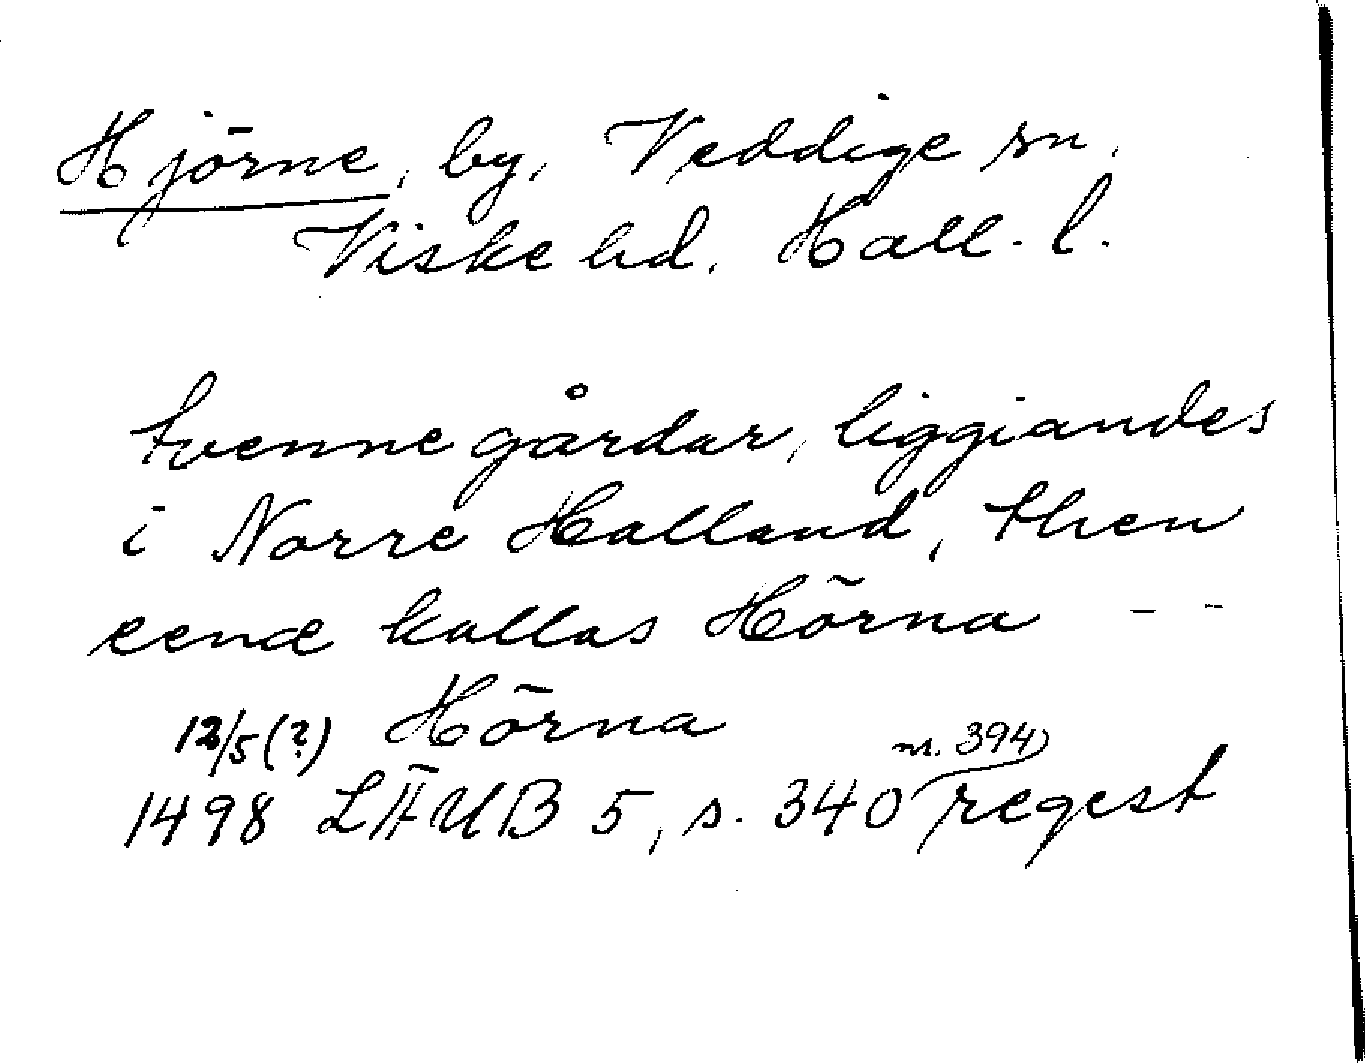 Hjörne, by, Veddige sn,
Viske hd. Hall. l.
tvenne gårdar, liggiandes
i Norre Halland, then
eenæ kallas Hörna - -
12/5(?) Hörna
nr. 394
1498 LÄUB 5, s. 340 regest